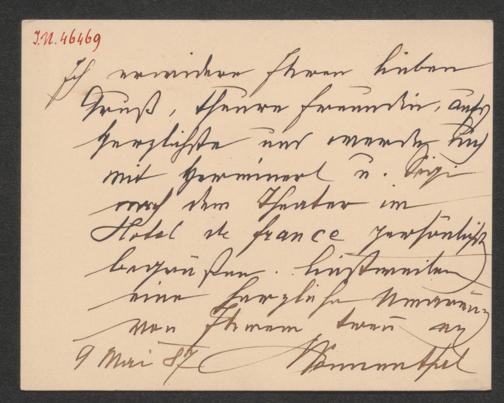 I.N. 46469
Ich erwidere Ihren lieben
Gruß, theure Freundin, aufs
herzlichste und werde Sie
mit Hermine u. Sigi
nach dem Theater im
Hotel de france persönlich
begrüßen. Einstweilen
eine herzliche Umarmung
von Ihrem treu erg
9 Mai 87 Sonnenthal